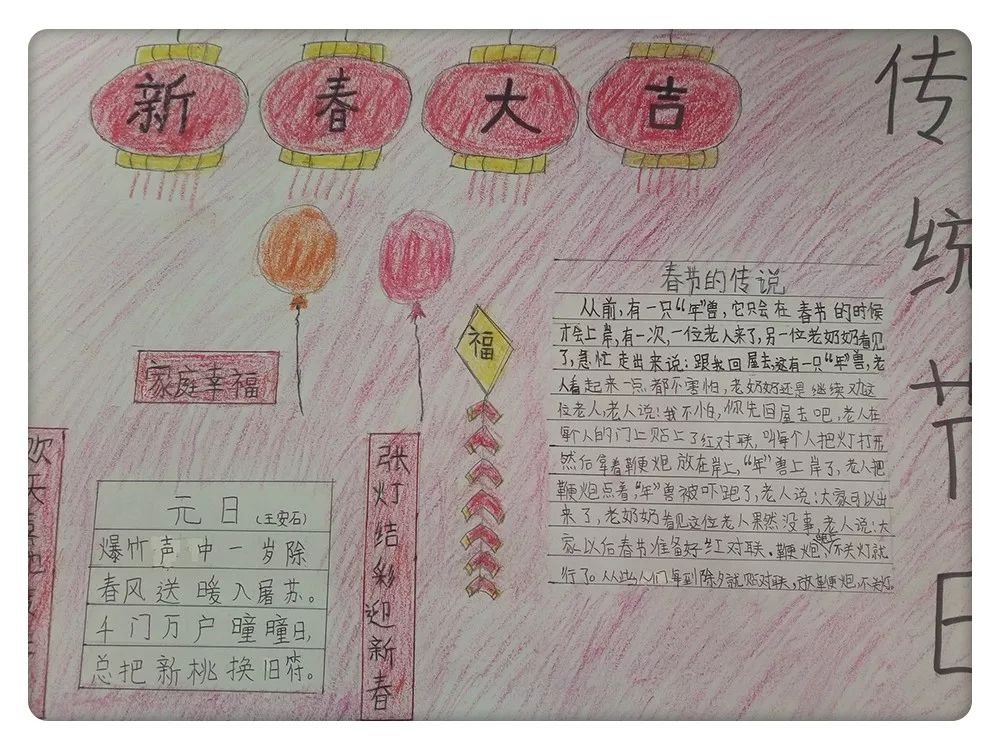 新春大吉
传统节日
家庭幸福
福
欢天喜地
张灯结彩迎新春
元日(王安石)
爆竹声中一岁除
春风送暖入屠苏。
千门万户瞳瞳日,
总把新桃换旧符。
春节的传说
从前,有一只“年”兽,它只会在春节的时候
才会上岸,有一次,一位老人来了,另一位老奶奶看见
了,急忙走出来说:跟我回屋去,还有一只“年”兽,老
人看起来一点都不害怕,老奶奶还是继续劝这
位老人,老人说:我不怕,你先回屋去吧,老人在
每个人的门上贴上了红对联,叫每个人把灯打开
然后拿着鞭炮放在岸上,“年”兽上岸了,老人把
鞭炮点着“年”兽被吓跑了,老人说:大家可以出
来了,老奶奶看见这位老人果然没事,老人说:大
家以后春节准备好红对联、鞭炮,不关灯就
行了。从此人们每到除夕就贴对联,放鞭炮,不关灯。